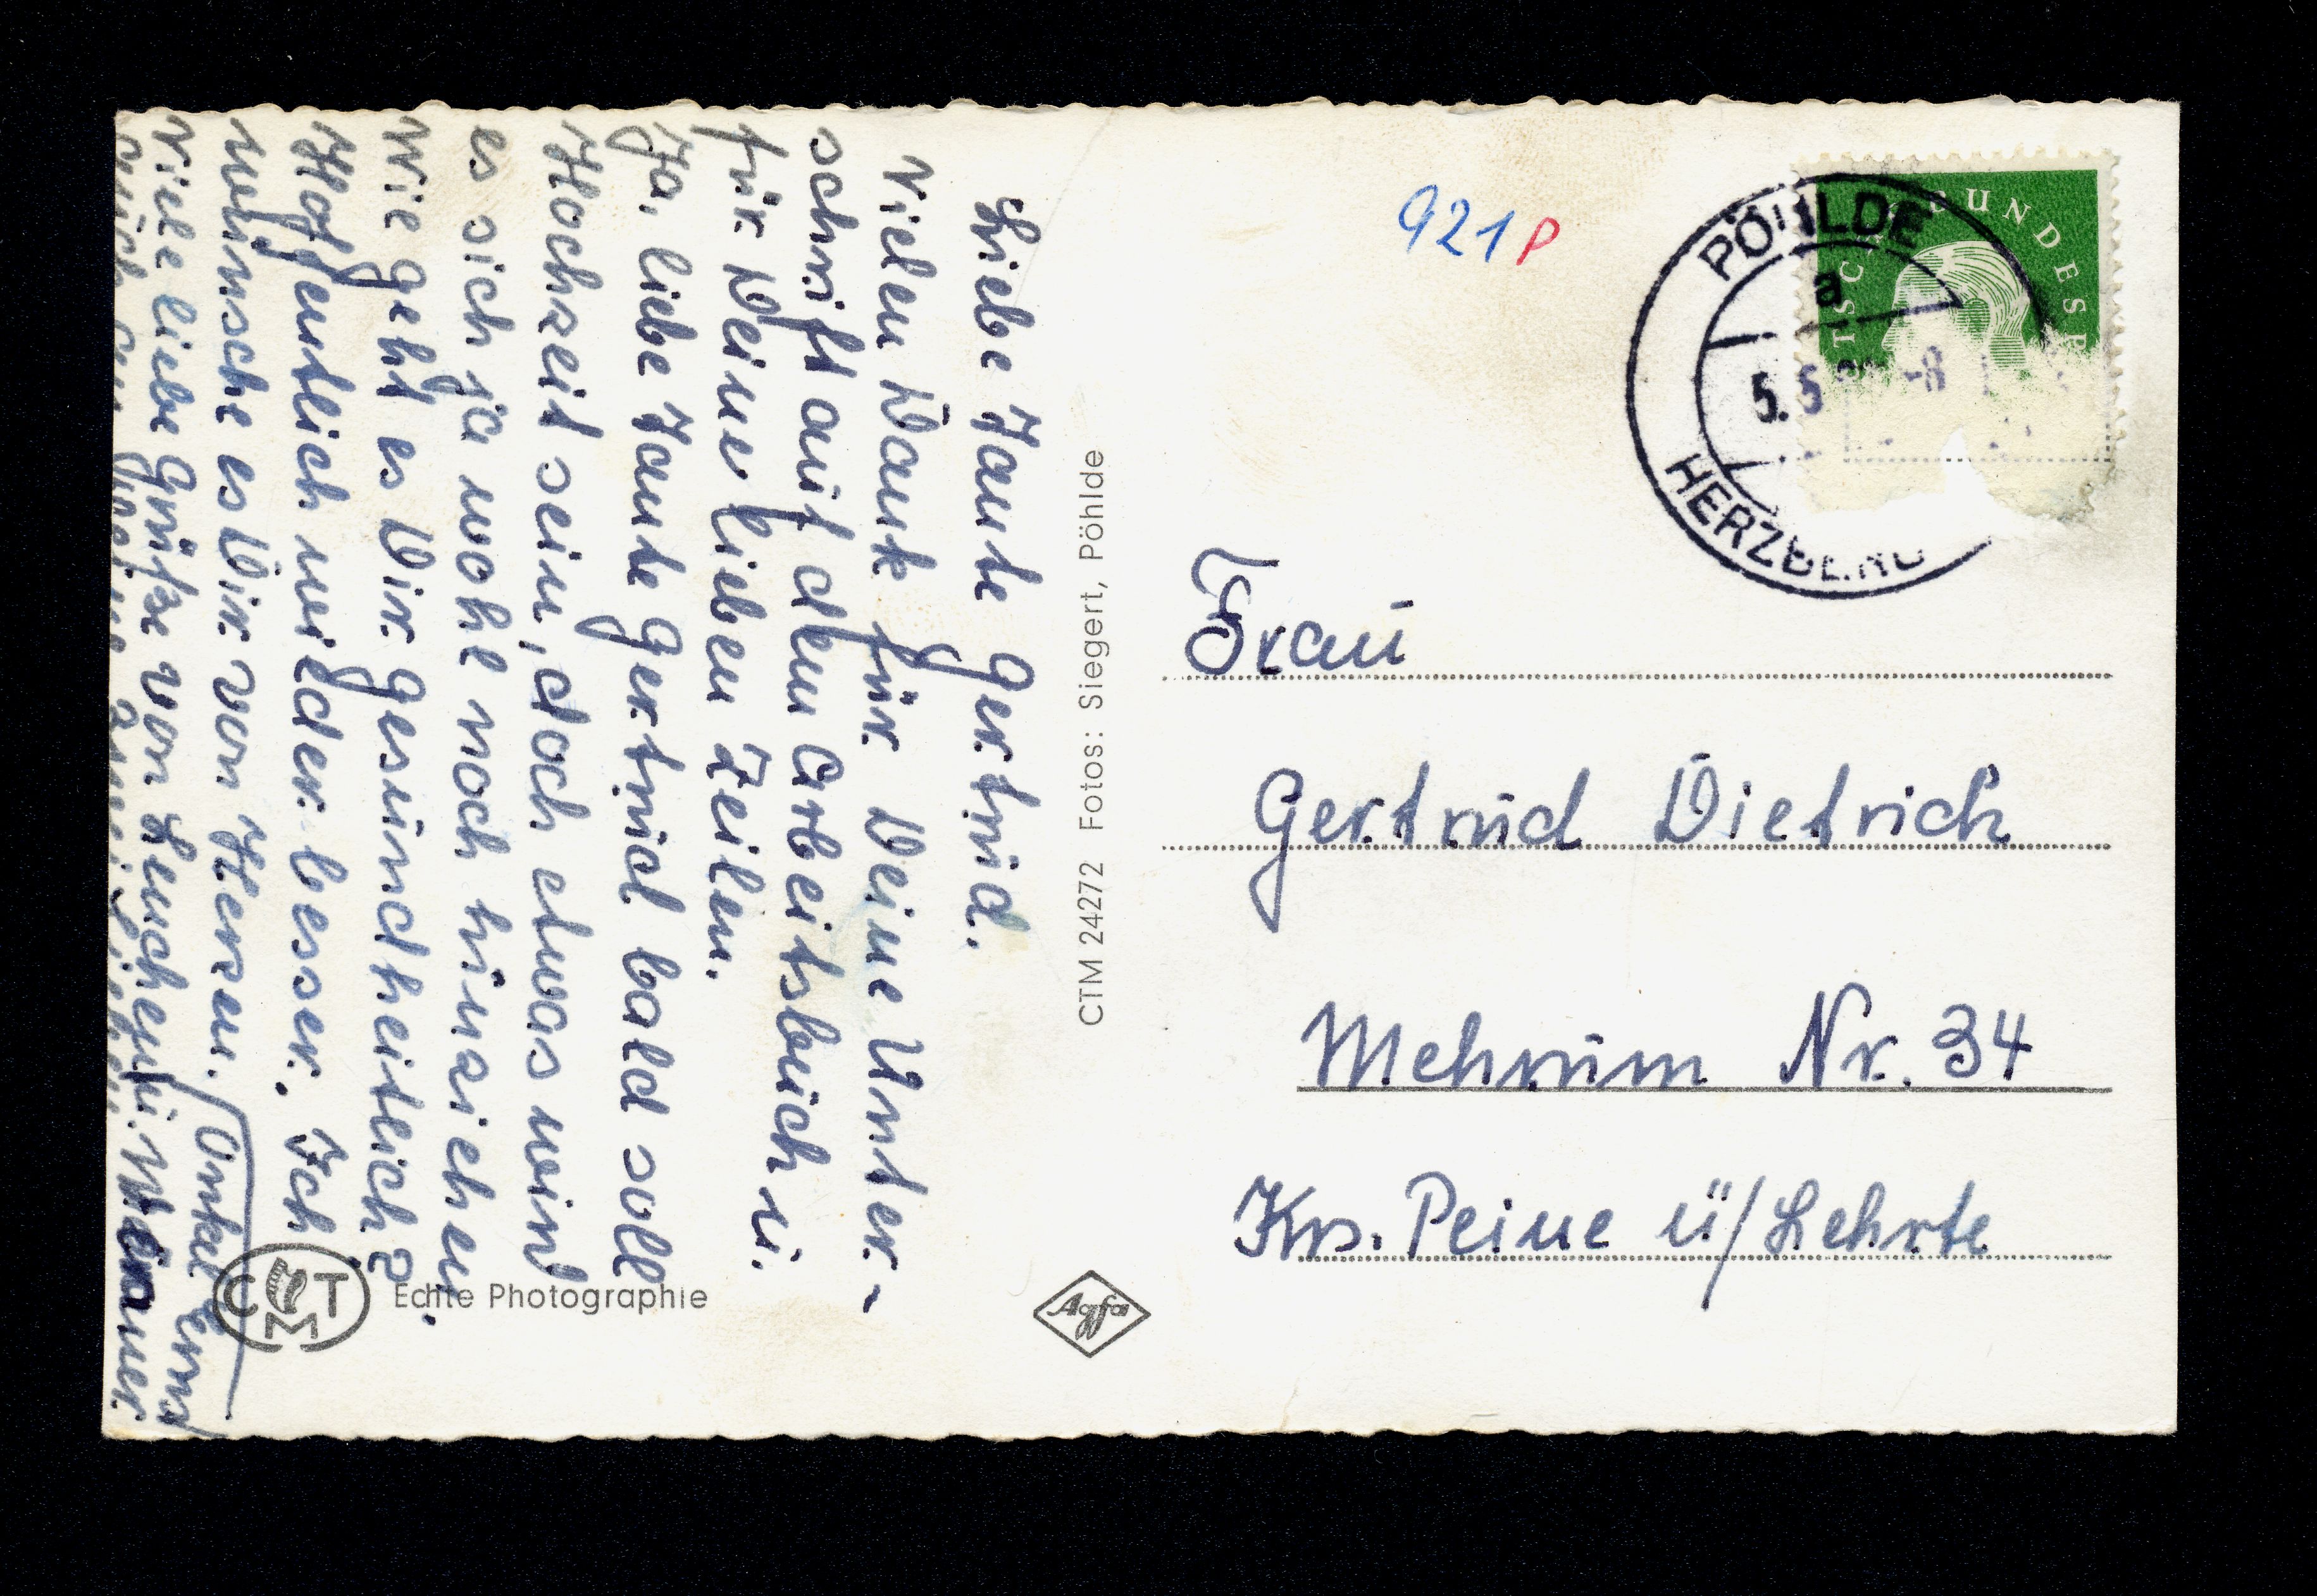 Liebe Tante Gertrud.
Vielen Dank für Deine Unter-
schrift auf dem Arbeitsbuch u.
für Deine lieben Zeilen.
Ja, liebe Tante Gertrud bald soll
Hochzeit sein, doch etwas wird
es sich ja wohl noch hinziehen.
Wie geht es Dir gesundheitlich?
Hoffentlich wieder besser. Ich
wünsche es Dir von Herzen.
Viele liebe Grüße von
Onkel
CTM 24272 Fotos: Siegert, Pöhlde
CTM
Echte Photographie
Agfa
921 P
BUNDESP
PÖHLDE
a
5.5
HERZBERG
Frau
Gertrud Dietrich
Mehrum Nr. 34
Krs. Peine ü/Lehrte